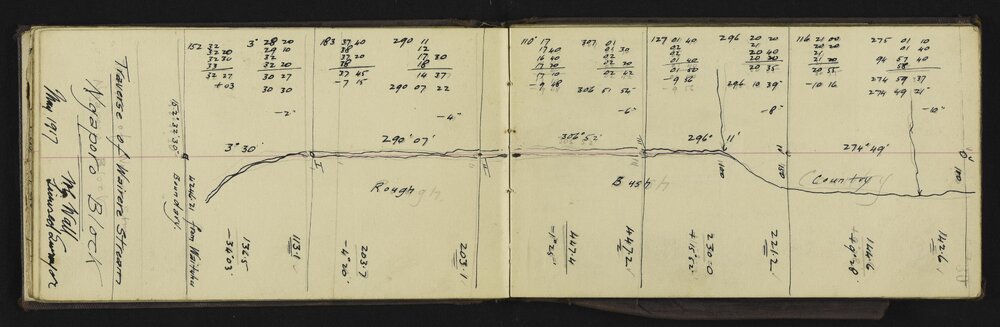 Traverse of Wairere Stream
Ngaporo Block
May 1917
Licensed Surveyor
152°32'30"
42467.1 from Waitahu
Boundary.
152 32
32 20
32 30
33
32 27
+03
3° 28 20
29 10
32
32 20
30 27
30 30
-2"
3° 30'
183 37 40
38
37 20
38
37 45
-7 15
290 11
12
17 30
18
14 37
290 07 22
-4"
290° 07'
110° 17
17 40
16 40
17 20
17 10
-9 48
307 01
01 30
02
02 20
02 42
306 51 54
-6"
306° 52'
127 01 40
02
02
01 40
01 50
-9 56
296 20 20
21
20 40
21
20 20
20 35
296 10 39
-8"
296° 11'
116 21 00
20 20
21
21 20
20 55
-10 16
275 01 10
01 40
94 57 40
58
274 59 37
274 49 21
-10"
274° 49'
Rough
Bush
Country
136.5
-34° 03'
113.1
203.7
-4° 20'
203.1
447.4
-1° 25'
447.2
230.0
+15° 22'
221.2
144.6
+9° 28'
142.6